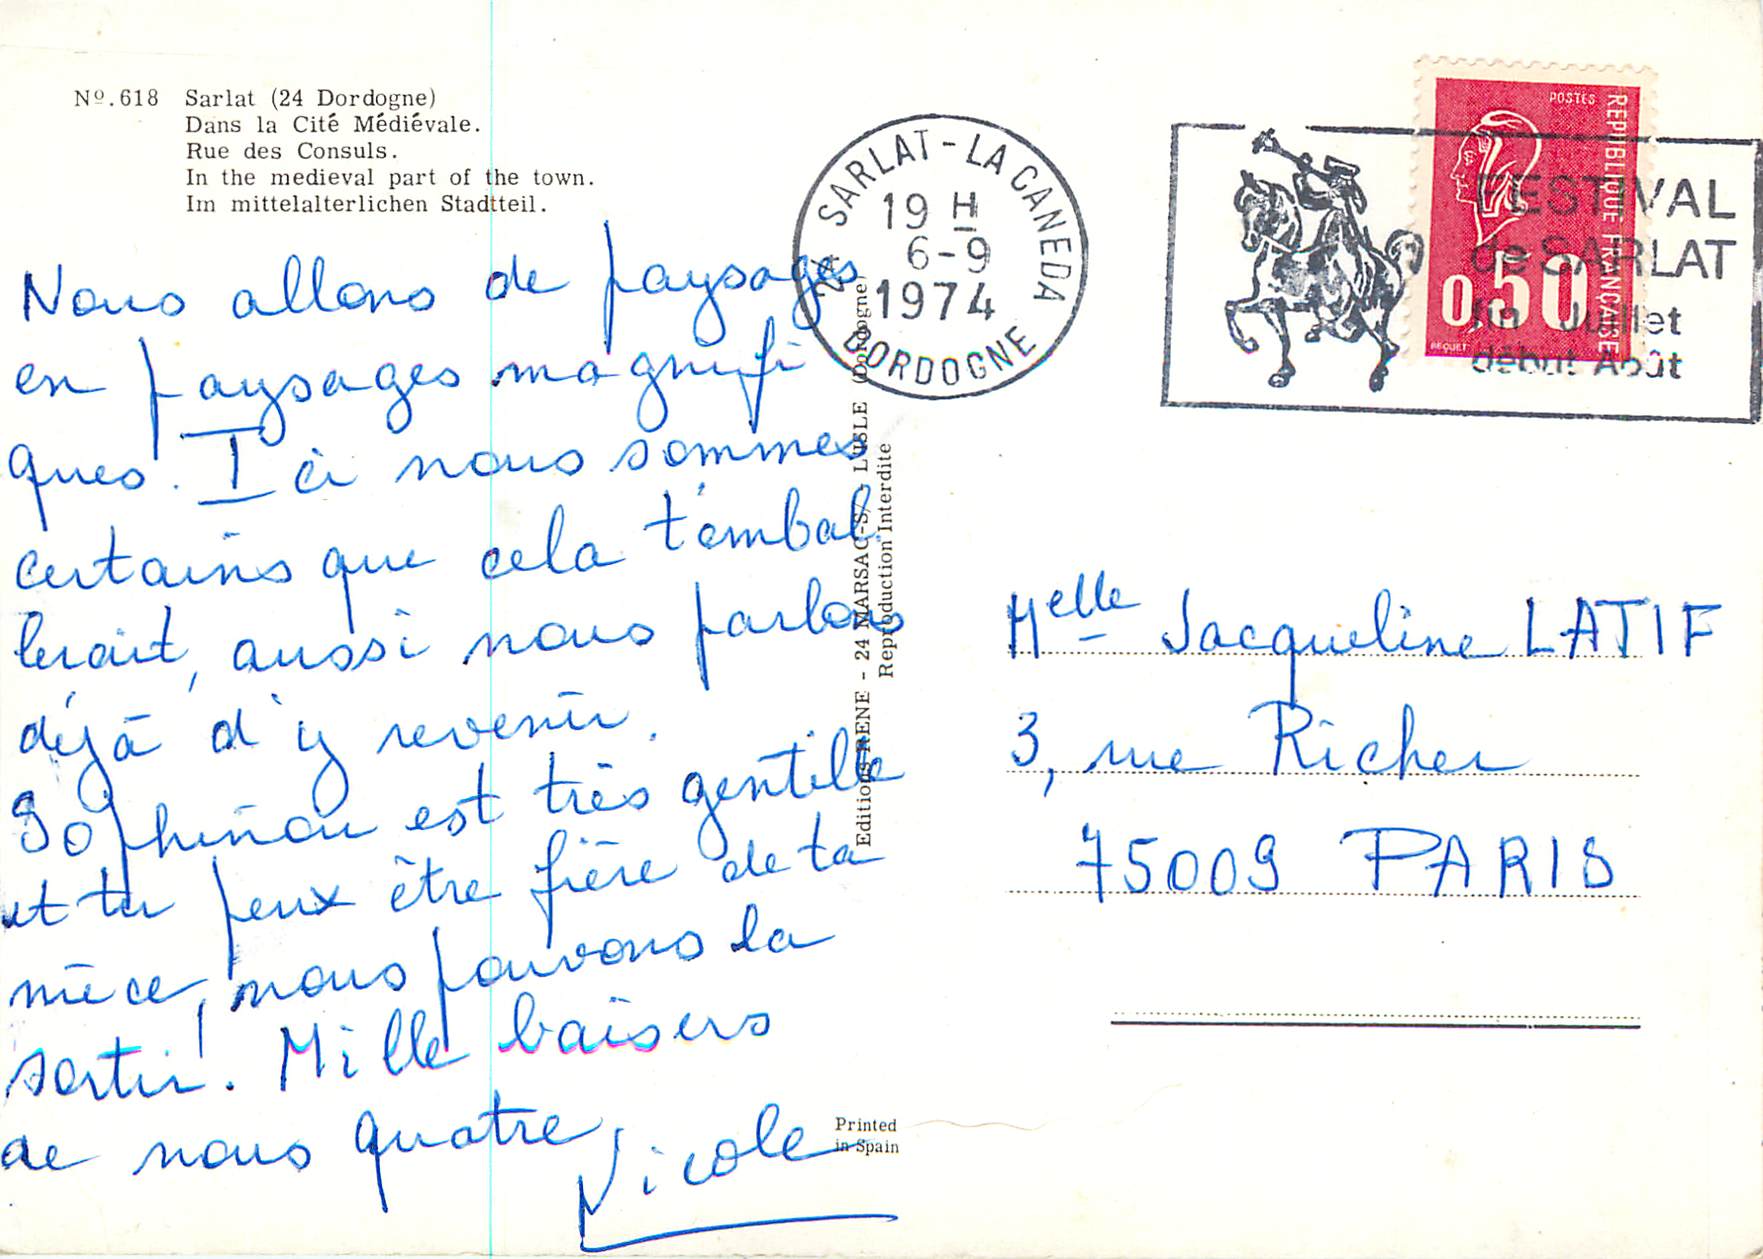 Nº.618 Sarlat (24 Dordogne)
Dans la Cité Médiévale.
Rue des Consuls.
In the medieval part of the town.
Im mittelalterlichen Stadtteil.
Nous allons de paysages
en paysages magnifi
ques. Ici nous sommes
certains que cela t'embal
lerait, aussi nous parlons
déjà d'y revenir.
Sophinou est très gentille
et tu peux être fière de ta
nièce, nous pouvons la
sortir! Mille baisers
de nous quatre,
Nicole
Editions RENE - 24 MARSAC-S/- L'ISLE (Dordogne)
Reproduction Interdite
Printed
in Spain
24 SARLAT-LA CANEDA
19 H
6-9
1974
DORDOGNE
POSTES
REPUBLIQUE FRANÇAISE
0,50
BEQUET
FESTIVAL
de SARLAT
fin Juillet
début Août
Melle Jacqueline LATIF
3, rue Richer
75009 PARIS